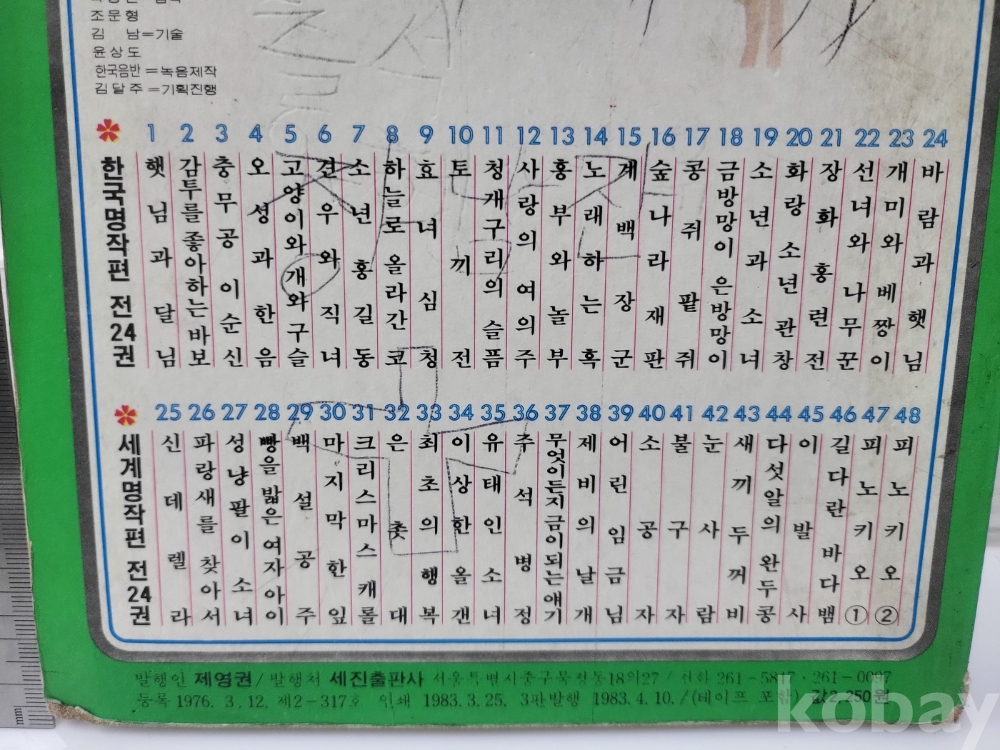 조문형
김 남=기술
윤상도
한국음반=녹음제작
김달주=기획진행
한국명작편 전24권
1 햇님과 달님
2 감투를 좋아하는 바보
3 충무공 이순신
4 오성과 한음
5 고양이와 개와 구슬
6 견우와 직녀
7 소년 홍길동
8 하늘로 올라간 코
9 효녀 심청
10 토끼전
11 청개구리의 슬픔
12 사랑의 여의주
13 흥부와 놀부
14 노래하는 혹
15 계백 장군
16 숲나라 재판
17 콩쥐 팥쥐
18 금방망이 은방망이
19 소년과 소녀
20 화랑 소년 관창
21 장화 홍련전
22 선녀와 나무꾼
23 개미와 베짱이
24 바람과 햇님
세계명작편 전24권
25 신데렐라
26 파랑새를 찾아서
27 성냥팔이 소녀
28 빵을 밟은 여자 아이
29 백설 공주
30 마지막 한 잎
31 크리스마스 캐롤
32 은촛대
33 최초의 행복
34 이상한 올갠
35 유태인 소녀
36 주석 병정
37 무엇이든지 금이 되는 얘기
38 제비의 날개
39 어린 임금님
40 소공자
41 불구자
42 눈사람
43 새끼 두꺼비
44 다섯알의 완두콩
45 이발사
46 길다란 바다뱀
47 피노키오 ①
48 피노키오 ②
발행인 제영권/발행처 세진출판사 서울특별시중구묵정동18의27/전화 261-5817·261-0097
등록 1976. 3. 12. 제2-317호 인쇄 1983. 3. 25. 3판발행 1983. 4. 10./(테이프 포함) 값2,250원
kobay